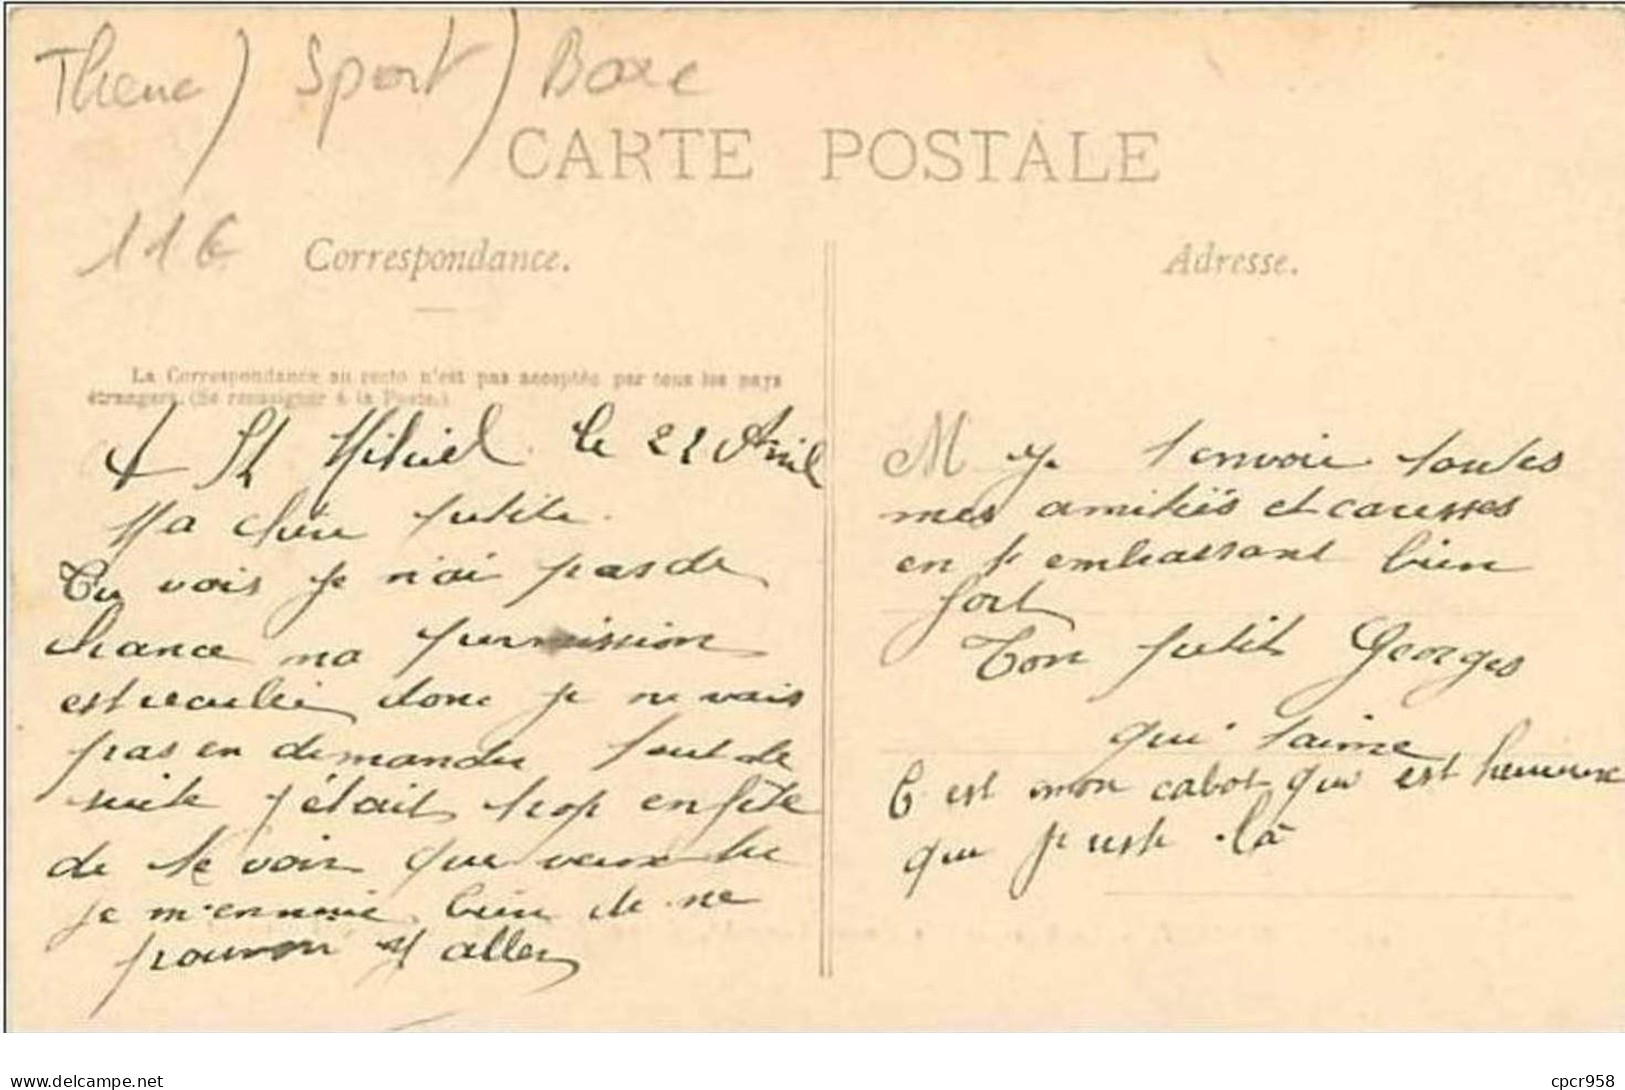 Theme) Sport) Boxe
CARTE POSTALE
11€
Correspondance.
Adresse.
La Correspondance au recto n'est pas acceptée par tous les pays
étrangers. (Se renseigner à la Poste.)
St Mihiel le 22 Avril
Ma chère petite
Tu vois je n'ai pas de
chance ma permission
est reculée donc je ne vais
pas en demander tout de
suite j'était trop en fête
de te voir que veux tu
je m'ennuie bien de ne
pouvoir y aller
M Je t'envoie toutes
mes amitiés et caresses
en t'embrassant bien
fort
Ton petit Georges
qui t'aime
C est mon cabot qui est heureux
que je reste là
www.delcampe.net
cpcr958